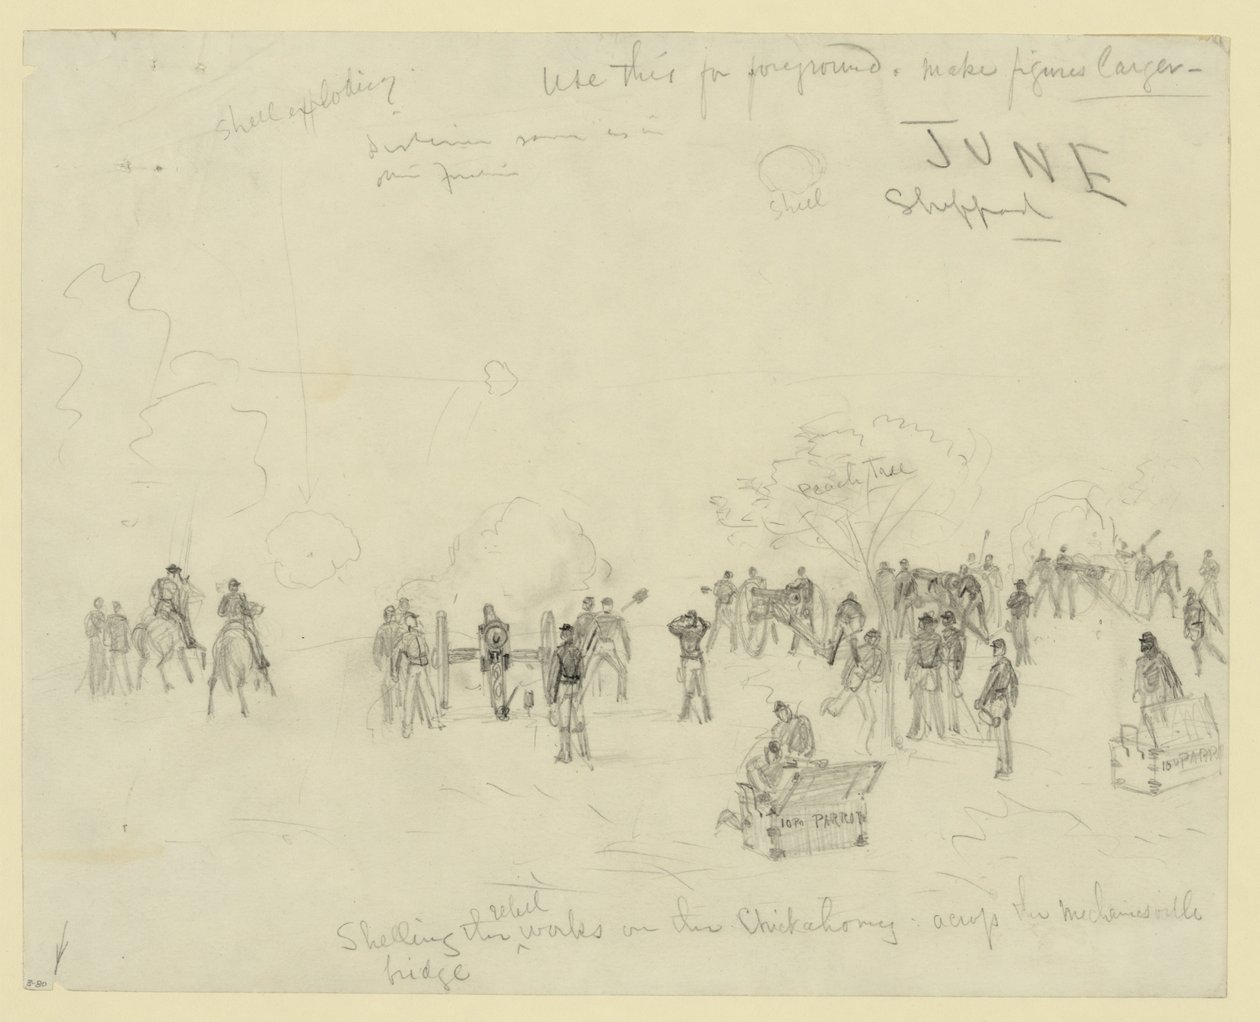 Use this for foreground. make figures larger-
Shell exploding.
JUNE
shell
Sheppard
Peach Tree
10 Pr PARROT
10 Pr PARR
Shelling the rebel works on the Chickahominy: across the Mechanicsville
bridge
E-80